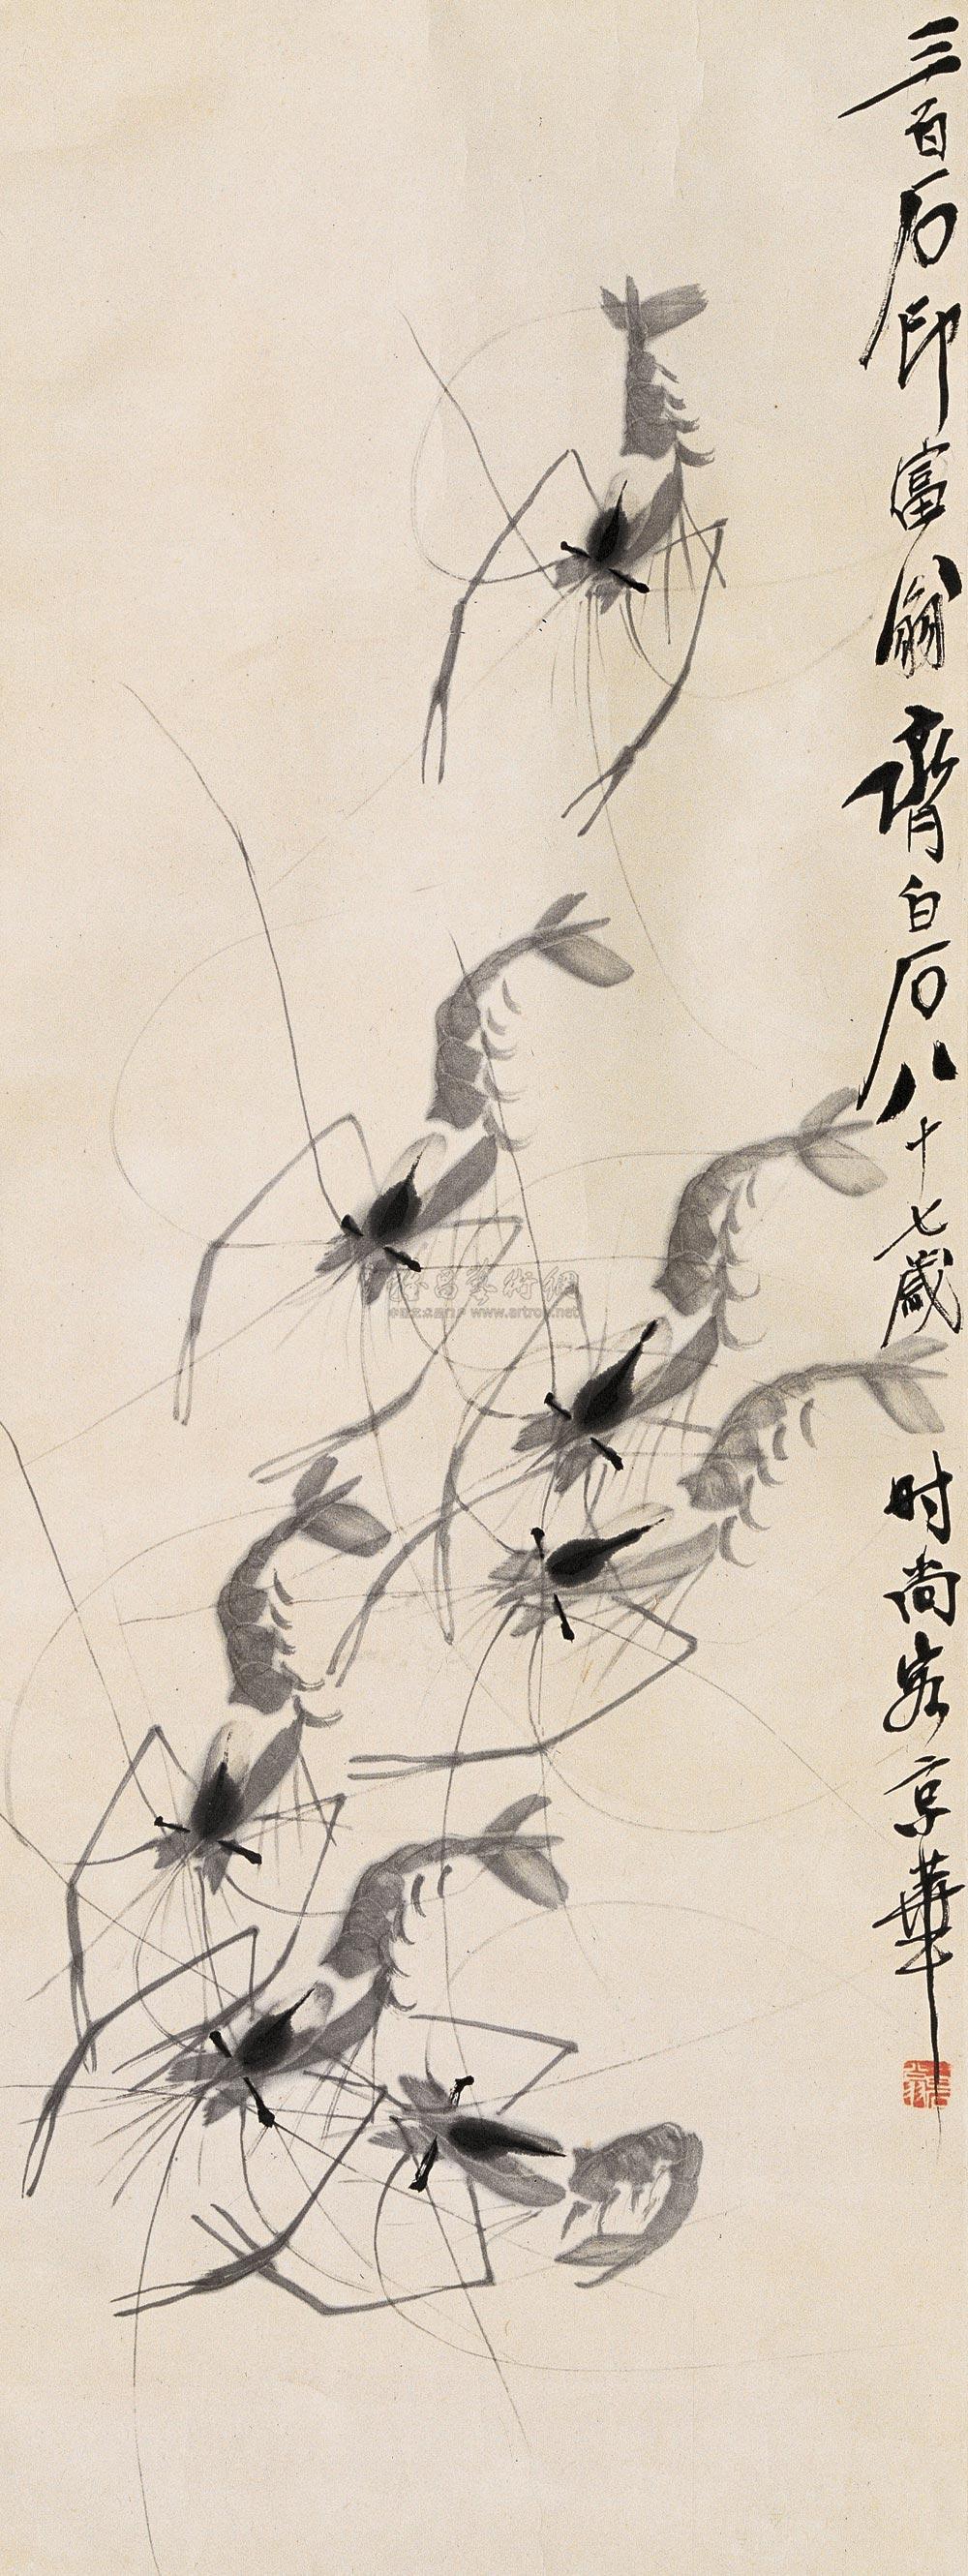 三百石印富翁齊白石八十七歲時尚客京華
www.artron.net